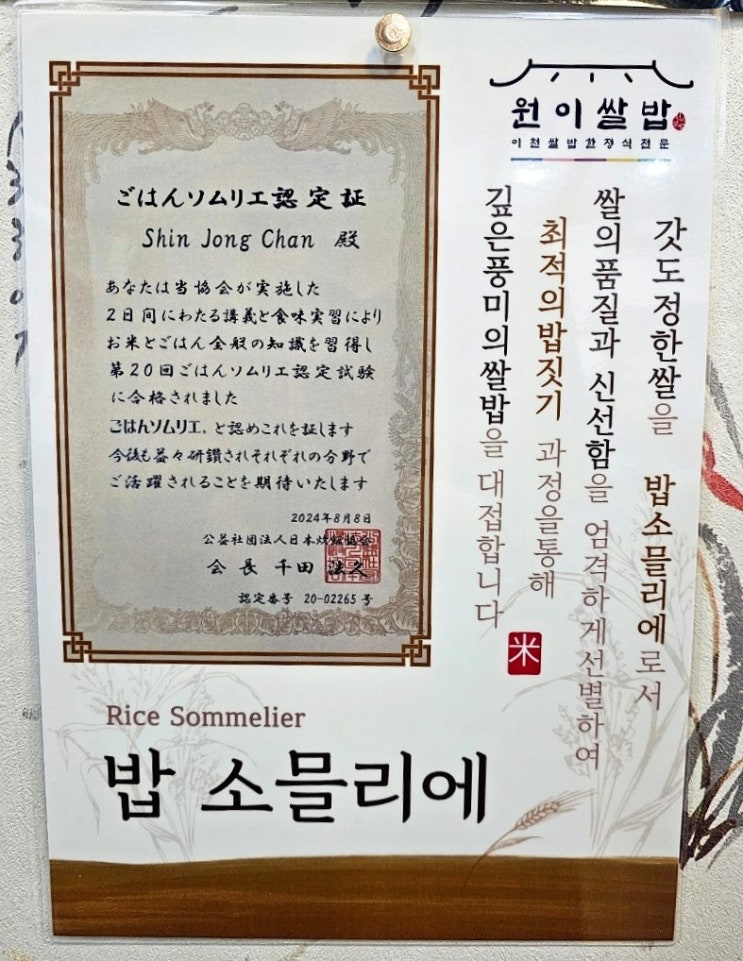 ごはんソムリエ認定証
Shin Jong Chan 殿
あなたは当協会が実施した
2日間にわたる講義と食味実習により
お米とごはん全般の知識を習得し
第20回ごはんソムリエ認定試験
に合格されました
ごはんソムリエ. と認めこれを証します
今後も益々研鑽されそれぞれの分野で
ご活躍されることを期待いたします
2024年8月8日
公益社団法人日本炊飯協会
会長 千田 法久
認定番号 20-02265 号
원이쌀밥
이천쌀밥한정식전문
갓도정한쌀을 밥소믈리에로서
쌀의품질과 신선함을 엄격하게선별하여
최적의밥짓기 과정을통해
깊은풍미의쌀밥을 대접합니다
米
Rice Sommelier
밥 소믈리에